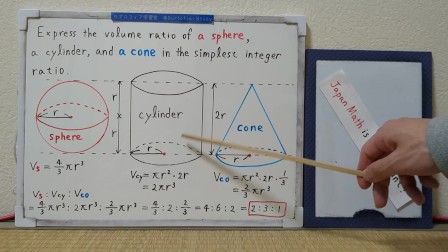 Express the volume ratio of a sphere,
a cylinder, and a cone in the simplest integer
ratio.
r
r
r
x
sphere
cylinder
r
2r
cone
r
Vs = 4/3 πr³
Vcy = πr²・2r
= 2πr³
Vco = πr²・2r・1/3
= 2/3 πr³
Vs : Vcy : Vco
4/3 πr³ : 2πr³ : 2/3 πr³ = 4/3 : 2 : 2/3 = 4 : 6 : 2 = 2 : 3 : 1
Japan Math is